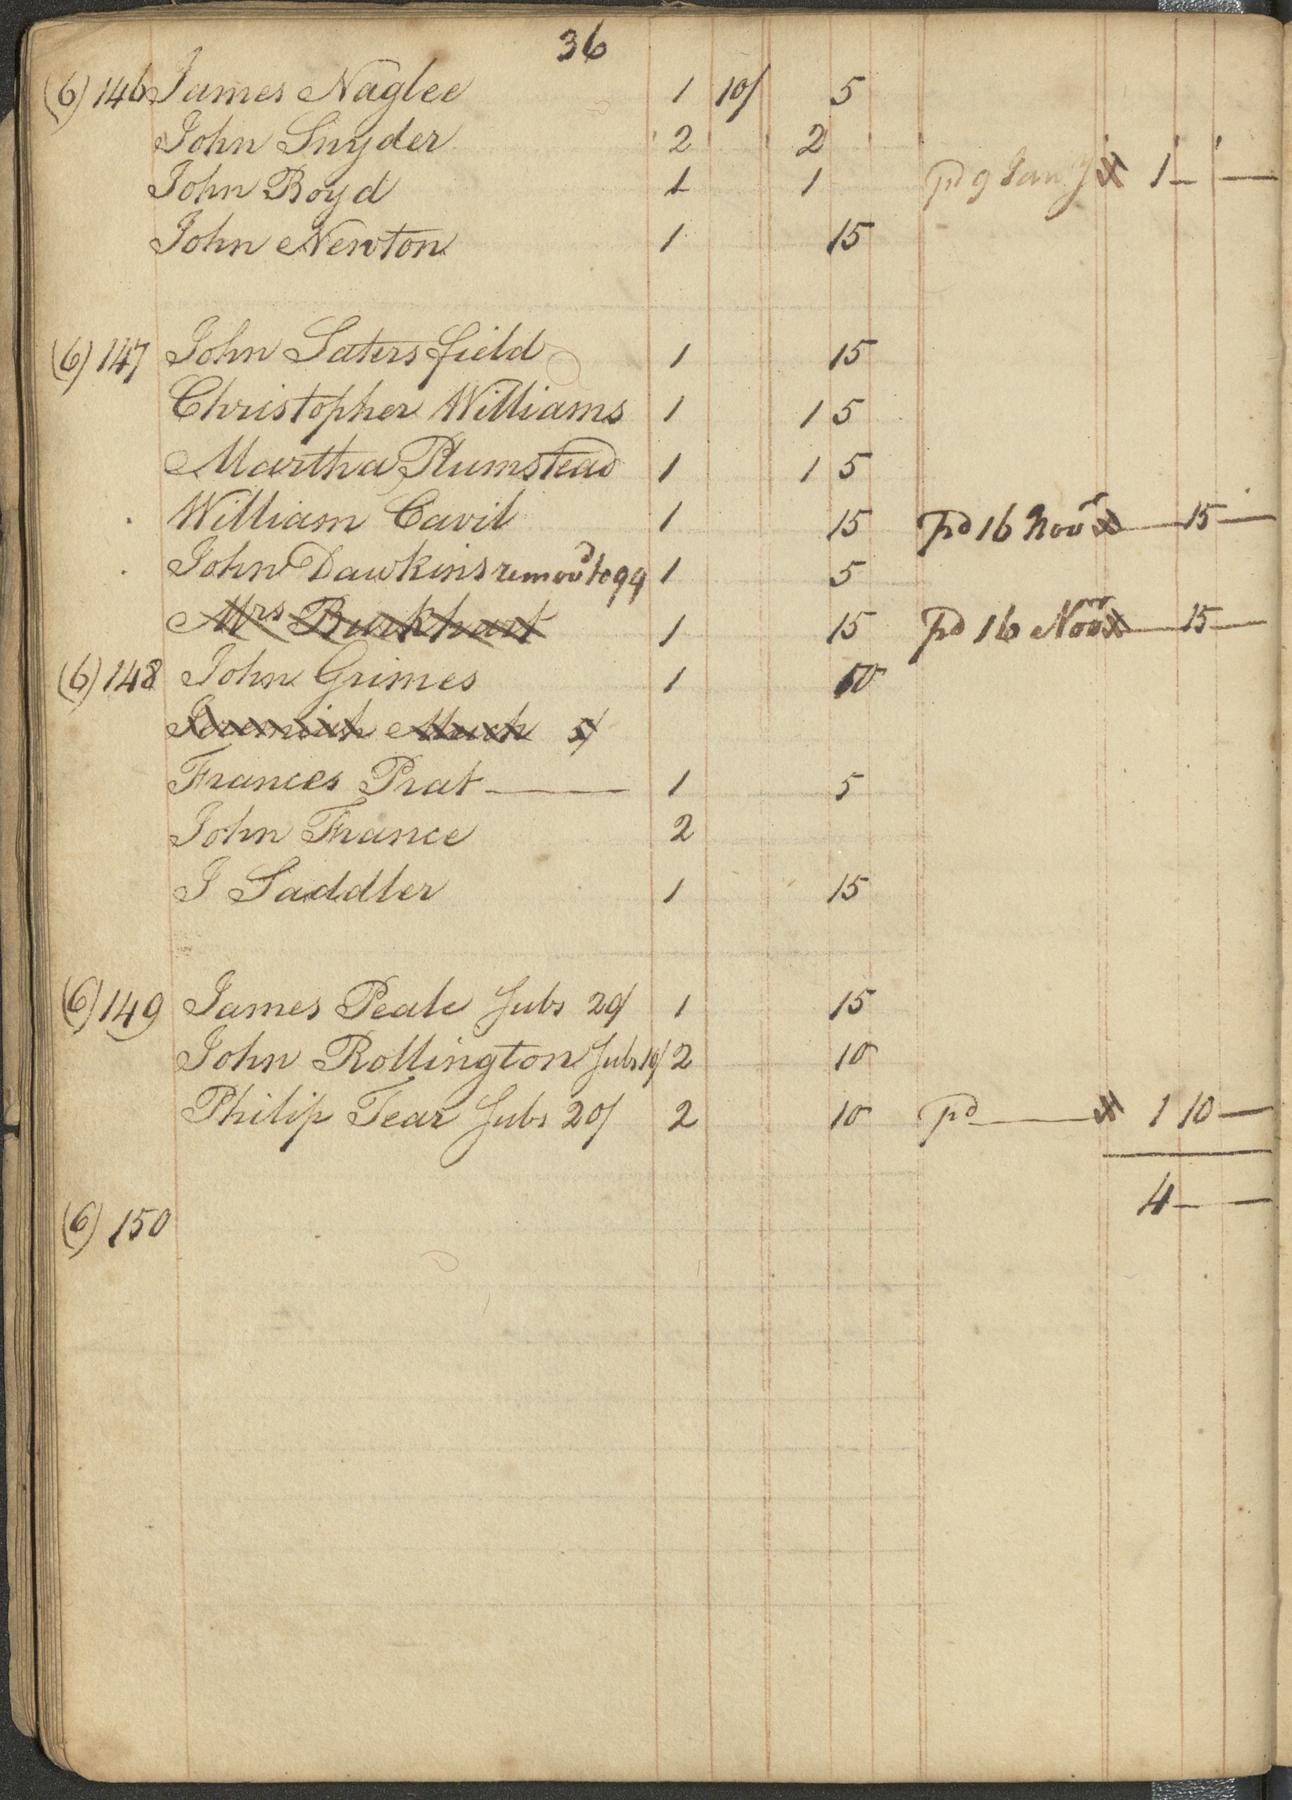 36
(6) 146 James Naglee 1 10/ 5
John Snyder 2 2
John Boyd 1 1 pd 9 Jany 1 — —
John Newton 1 15
(6) 147 John Satersfield 1 15
Christopher Williams 1 1 5
Martha Plumstead 1 1 5
William Cavil 1 15 pd 16 Novr — 15 —
John Dawkins removd to 99 1 5
Mrs Burkhart 1 15 pd 16 Novr — 15 —
(6) 148 John Grimes 1 10
Jeremiah 5/
Frances Prat — 1 5
John France 2
J Saddler 1 15
(6) 149 James Peale Subs 20/ 1 15
John Rollington Subs 10/ 2 10
Philip Tear Subs 20/ 2 10 pd — 1 10 —
4 — —
(6) 150